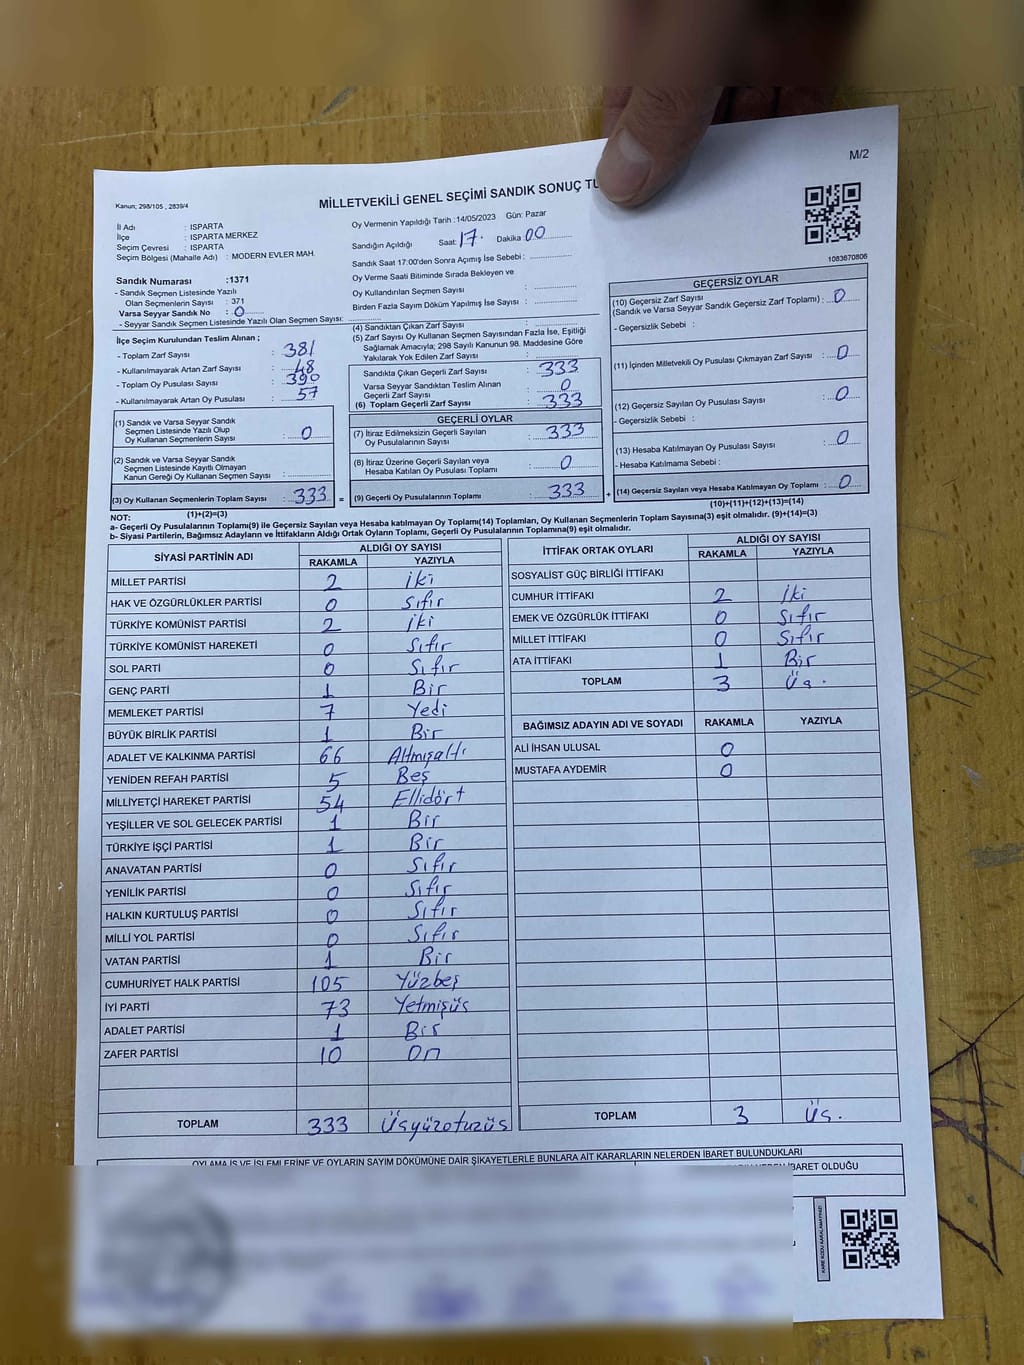 M/2
Kanun; 298/105 , 2839/4
MİLLETVEKİLİ GENEL SEÇİMİ SANDIK SONUÇ TU
İl Adı : ISPARTA
İlçe : ISPARTA MERKEZ
Seçim Çevresi : ISPARTA
Seçim Bölgesi (Mahalle Adı) : MODERN EVLER MAH.
Oy Vermenin Yapıldığı Tarih :14/05/2023 Gün: Pazar
Sandığın Açıldığı Saat: 17. Dakika 00
Sandık Saat 17:00'den Sonra Açımış İse Sebebi :
Oy Verme Saati Bitiminde Sırada Bekleyen ve
Oy Kullandırılan Seçmen Sayısı :
Birden Fazla Sayım Döküm Yapılmış İse Sayısı :
1083670806
Sandık Numarası :1371
- Sandık Seçmen Listesinde Yazılı
Olan Seçmenlerin Sayısı : 371
Varsa Seyyar Sandık No : 0
- Seyyar Sandık Seçmen Listesinde Yazılı Olan Seçmen Sayısı:
İlçe Seçim Kurulundan Teslim Alınan ;
- Toplam Zarf Sayısı : 381
- Kullanılmayarak Artan Zarf Sayısı : 48
- Toplam Oy Pusulası Sayısı : 390
- Kullanılmayarak Artan Oy Pusulası : 57
(1) Sandık ve Varsa Seyyar Sandık
Seçmen Listesinde Yazılı Olup
Oy Kullanan Seçmenlerin Sayısı : 0
(2) Sandık ve Varsa Seyyar Sandık
Seçmen Listesinde Kayıtlı Olmayan
Kanun Gereği Oy Kullanan Seçmen Sayısı :
(3) Oy Kullanan Seçmenlerin Toplam Sayısı : 333 =
(1)+(2)=(3)
(4) Sandıktan Çıkan Zarf Sayısı :
(5) Zarf Sayısı Oy Kullanan Seçmen Sayısından Fazla İse, Eşitliği
Sağlamak Amacıyla; 298 Sayılı Kanunun 98. Maddesine Göre
Yakılarak Yok Edilen Zarf Sayısı :
Sandıkta Çıkan Geçerli Zarf Sayısı : 333
Varsa Seyyar Sandıktan Teslim Alınan
Geçerli Zarf Sayısı : 0
(6) Toplam Geçerli Zarf Sayısı : 333
GEÇERLİ OYLAR
(7) İtiraz Edilmeksizin Geçerli Sayılan
Oy Pusulalarının Sayısı : 333
(8) İtiraz Üzerine Geçerli Sayılan veya
Hesaba Katılan Oy Pusulası Toplamı : 0
(9) Geçerli Oy Pusulalarının Toplamı : 333 +
GEÇERSİZ OYLAR
(10) Geçersiz Zarf Sayısı
(Sandık ve Varsa Seyyar Sandık Geçersiz Zarf Toplamı) : 0
- Geçersizlik Sebebi :
(11) İçinden Milletvekili Oy Pusulası Çıkmayan Zarf Sayısı : 0
(12) Geçersiz Sayılan Oy Pusulası Sayısı : 0
- Geçersizlik Sebebi :
(13) Hesaba Katılmayan Oy Pusulası Sayısı : 0
- Hesaba Katılmama Sebebi :
(14) Geçersiz Sayılan veya Hesaba Katılmayan Oy Toplamı : 0
(10)+(11)+(12)+(13)=(14)
NOT:
a- Geçerli Oy Pusulalarının Toplamı(9) ile Geçersiz Sayılan veya Hesaba katılmayan Oy Toplamı(14) Toplamları, Oy Kullanan Seçmenlerin Toplam Sayısına(3) eşit olmalıdır. (9)+(14)=(3)
b- Siyasi Partilerin, Bağımsız Adayların ve İttifakların Aldığı Ortak Oyların Toplamı, Geçerli Oy Pusulalarının Toplamına(9) eşit olmalıdır.
SİYASİ PARTİNİN ADI ALDIĞI OY SAYISI
RAKAMLA YAZIYLA
MİLLET PARTİSİ 2 İki
HAK VE ÖZGÜRLÜKLER PARTİSİ 0 Sıfır
TÜRKİYE KOMÜNİST PARTİSİ 2 İki
TÜRKİYE KOMÜNİST HAREKETİ 0 Sıfır
SOL PARTİ 0 Sıfır
GENÇ PARTİ 1 Bir
MEMLEKET PARTİSİ 7 Yedi
BÜYÜK BİRLİK PARTİSİ 1 Bir
ADALET VE KALKINMA PARTİSİ 66 Altmışaltı
YENİDEN REFAH PARTİSİ 5 Beş
MİLLİYETÇİ HAREKET PARTİSİ 54 Ellidört
YEŞİLLER VE SOL GELECEK PARTİSİ 1 Bir
TÜRKİYE İŞÇİ PARTİSİ 1 Bir
ANAVATAN PARTİSİ 0 Sıfır
YENİLİK PARTİSİ 0 Sıfır
HALKIN KURTULUŞ PARTİSİ 0 Sıfır
MİLLİ YOL PARTİSİ 0 Sıfır
VATAN PARTİSİ 1 Bir
CUMHURİYET HALK PARTİSİ 105 Yüzbeş
İYİ PARTİ 73 Yetmişüç
ADALET PARTİSİ 1 Bir
ZAFER PARTİSİ 10 On
TOPLAM 333 Üçyüzotuzüç
İTTİFAK ORTAK OYLARI ALDIĞI OY SAYISI
RAKAMLA YAZIYLA
SOSYALİST GÜÇ BİRLİĞİ İTTİFAKI
CUMHUR İTTİFAKI 2 İki
EMEK VE ÖZGÜRLÜK İTTİFAKI 0 Sıfır
MİLLET İTTİFAKI 0 Sıfır
ATA İTTİFAKI 1 Bir
TOPLAM 3 Üç.
BAĞIMSIZ ADAYIN ADI VE SOYADI RAKAMLA YAZIYLA
ALİ İHSAN ULUSAL 0
MUSTAFA AYDEMİR 0
TOPLAM 3 Üç.
OYLAMA İŞ VE İŞLEMLERİNE VE OYLARIN SAYIM DÖKÜMÜNE DAİR ŞİKAYETLERLE BUNLARA AİT KARARLARIN NELERDEN İBARET BULUNDUKLARI
İBARET OLDUĞU
KARE KODU KARALAMAYINIZ!